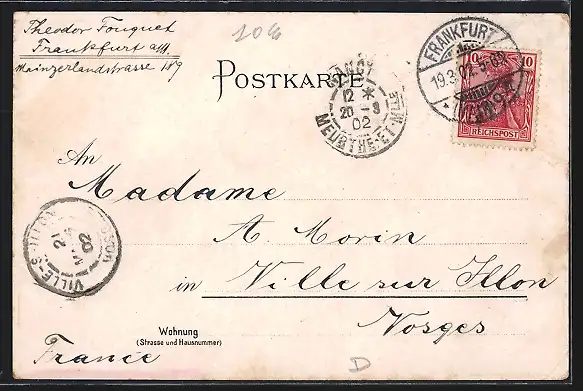 Theodor Fouquet
Frankfurt a/M.
Mainzerlandstrasse 189
10
POSTKARTE
NANCY
12 *
20 - 3
02
MEURTHE-ET-MLLE
FRANKFURT
19.3.02.
10 10
REICHSPOST
An
Madame
A. Morin
in Ville sur Illon
Vosges
VILLE-S-ILLON
21
02
Wohnung
(Strasse und Hausnummer)
France
D